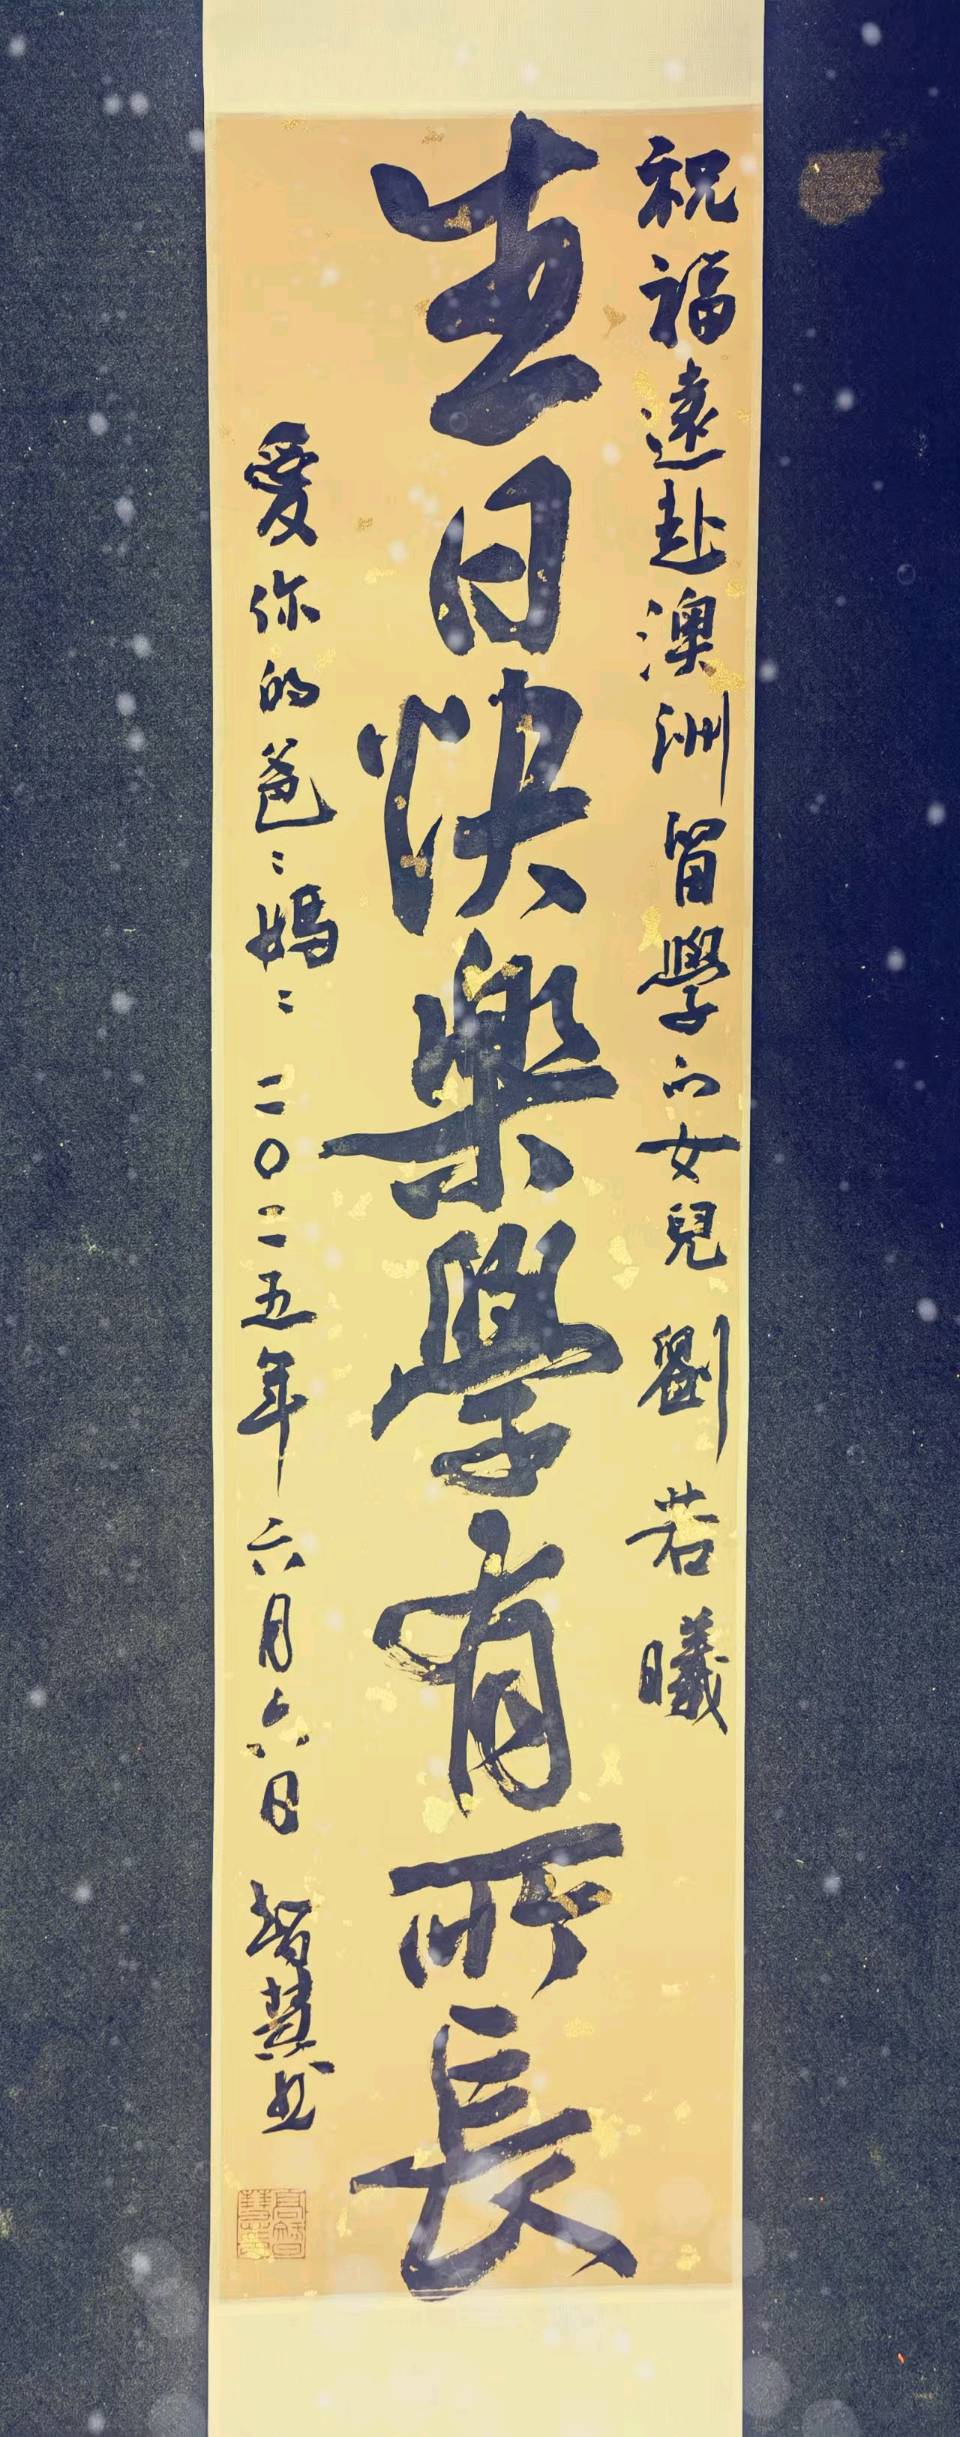 祝福遠赴澳洲留學的女兒 劉若曦
生日快樂學有所長
愛你的爸:媽: 二〇二五年六月六日 智慧书